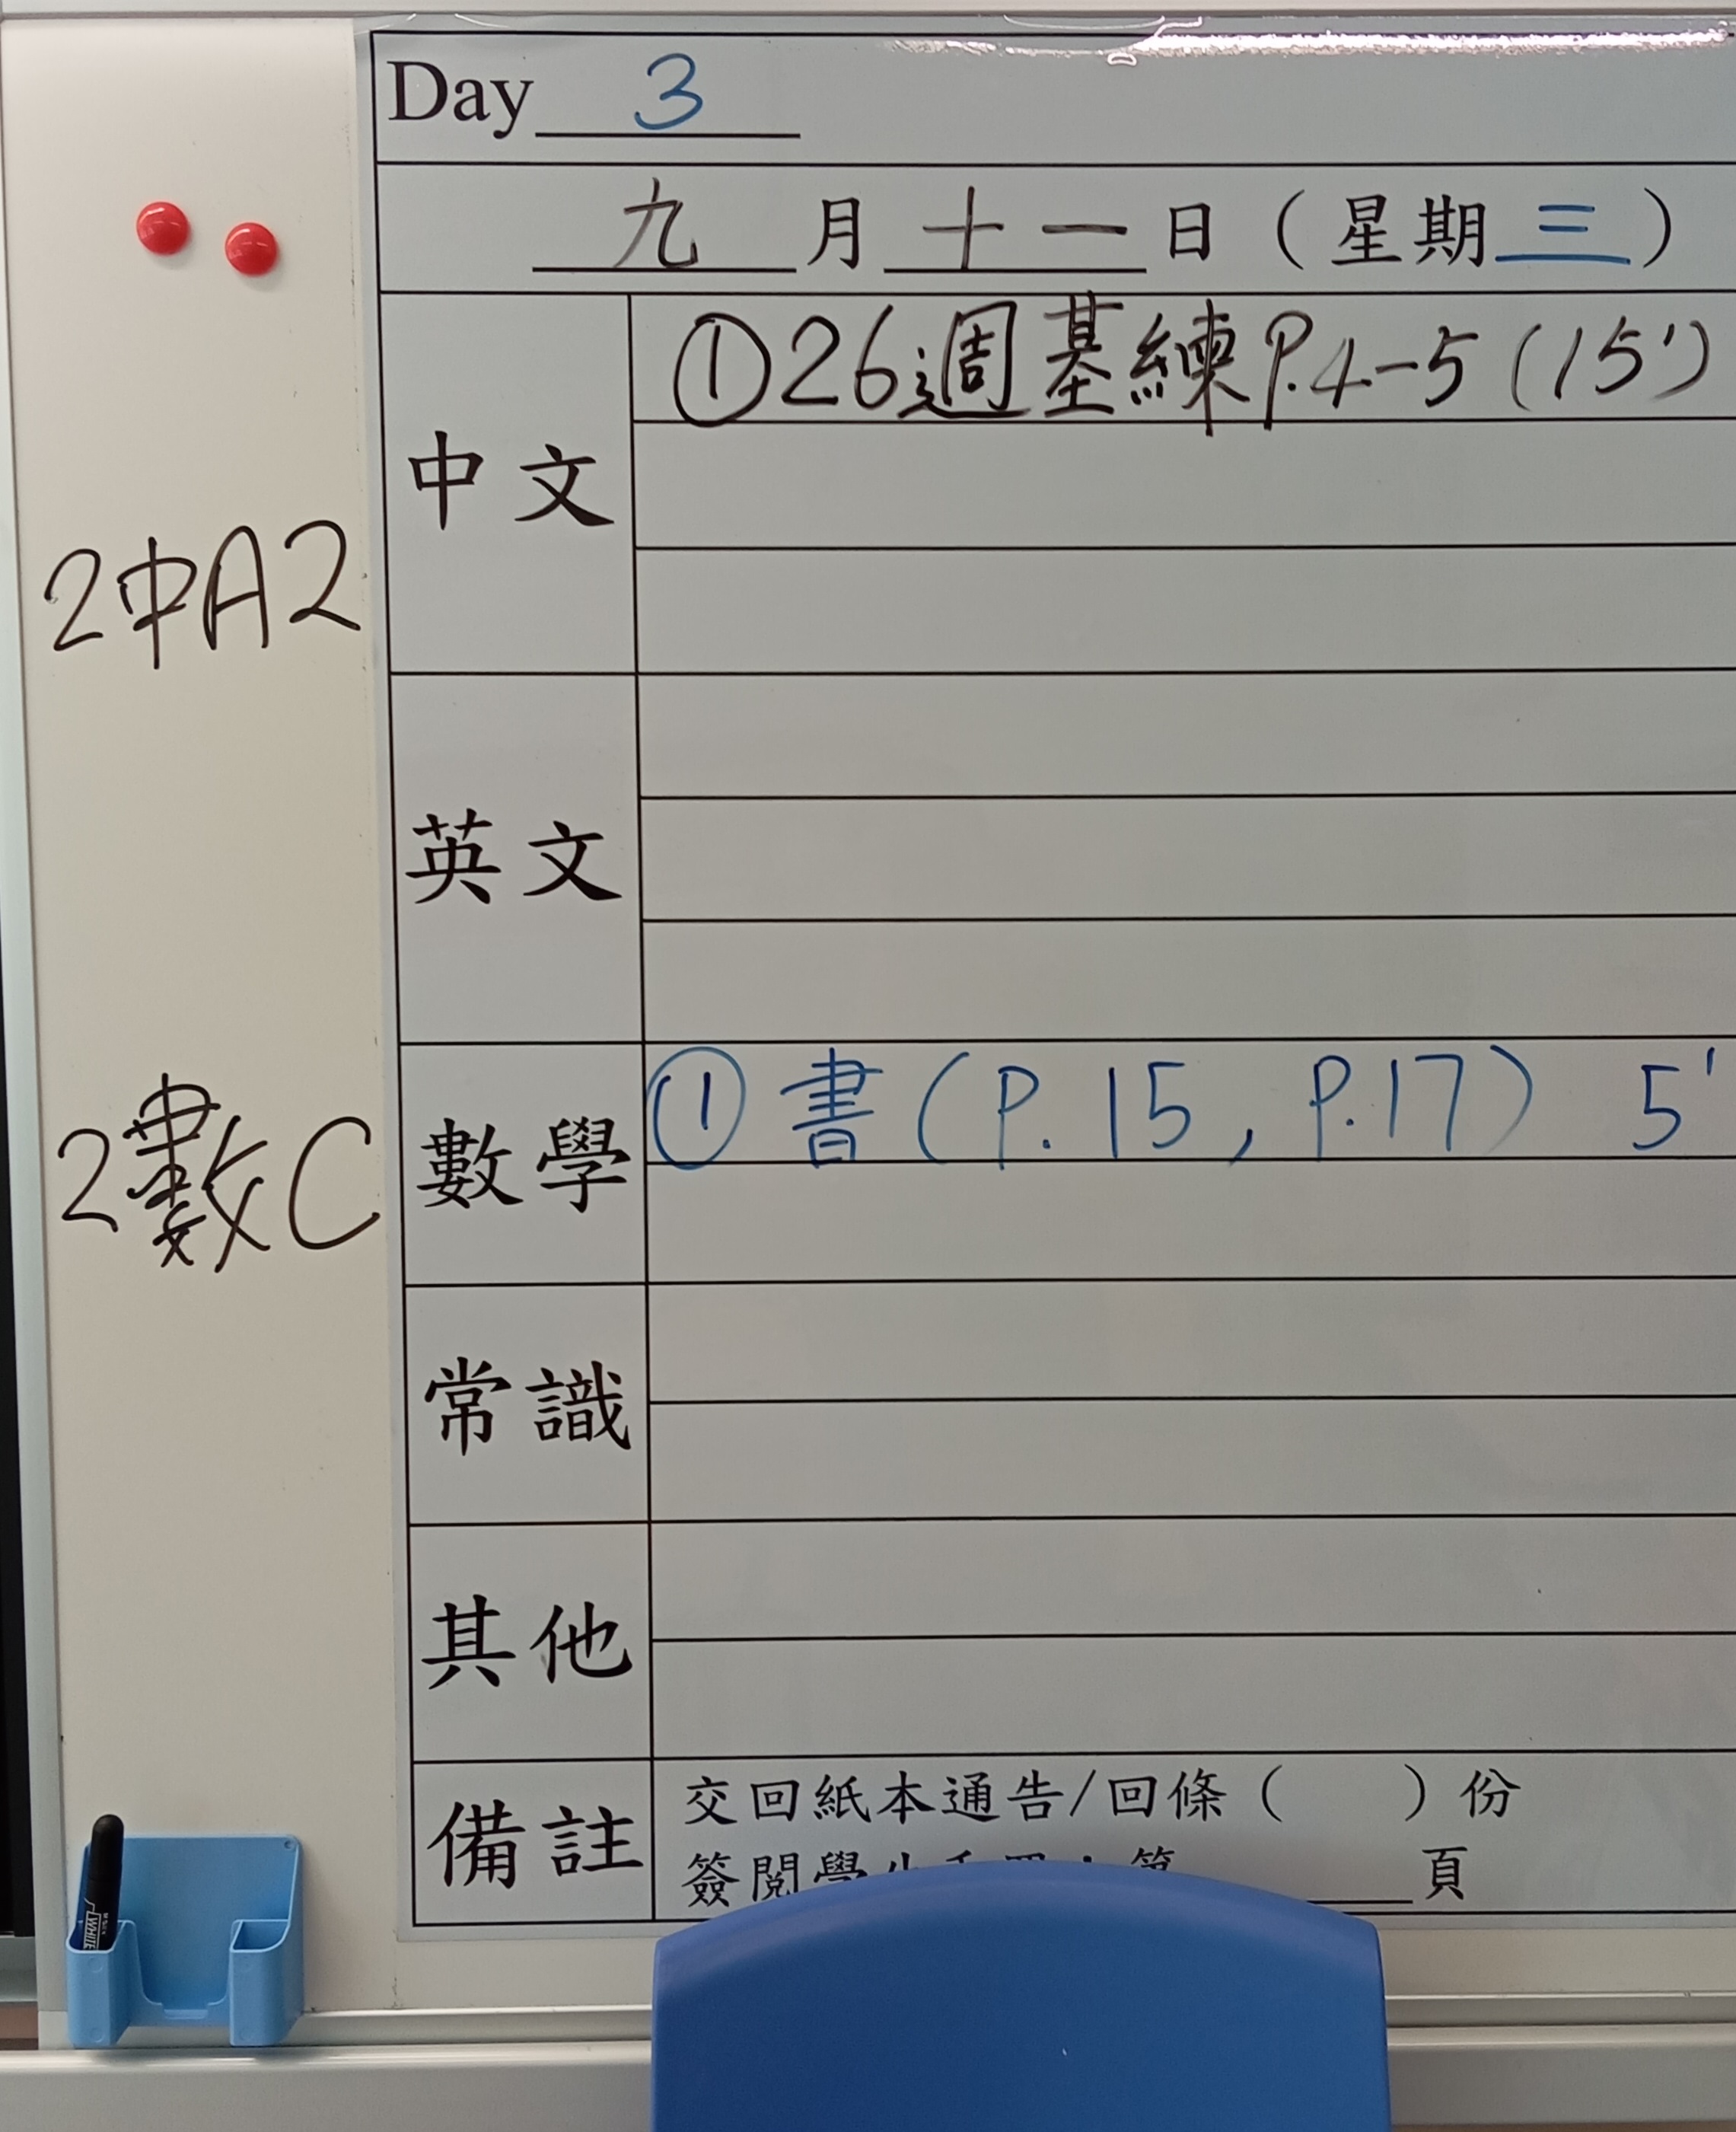 Day 3
九月十一日(星期三)
中文
①26週基練P.4-5(15')
2中A2
英文
數學
①書(P.15, P.17) 5'
2數C
常識
其他
備註
交回紙本通告/回條( )份
簽閱學 頁
WHITE